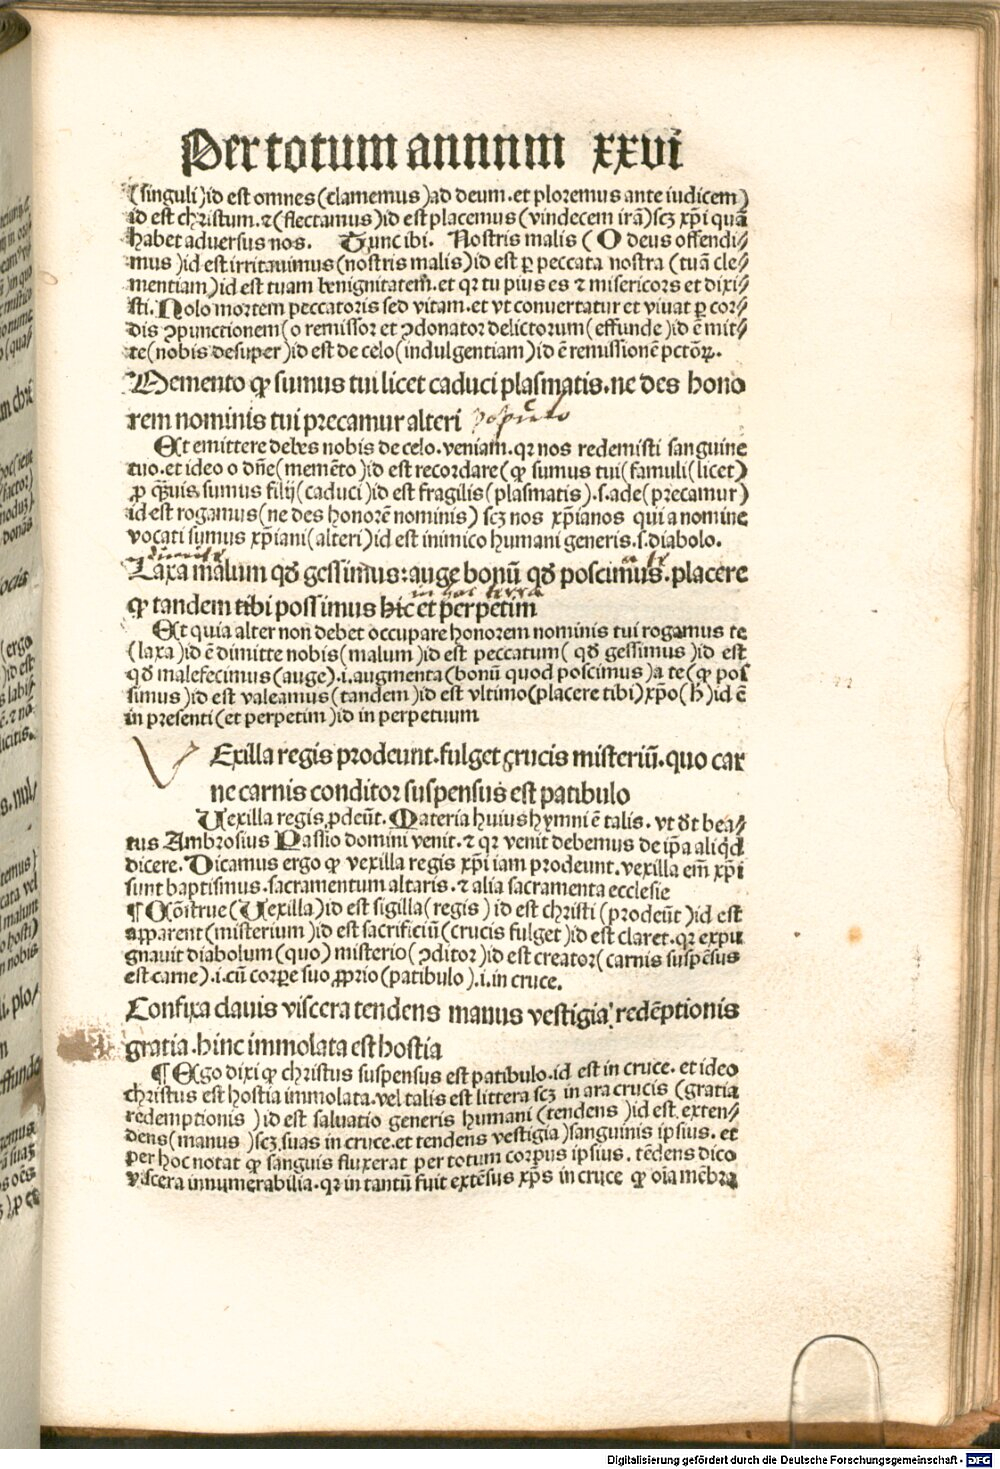 Per totum annnm xxvi
(singuli)id est omnes(clamemus)ad deum.et ploremus ante iudicem)
id est christum.⁊(flectamus)id est placemus(vindecem irā)scꝫ xp̄i quā
habet aduersus nos. Tunc ibi. Nostris malis (O deus offendi⸗
mus)id est irritauimus(nostris malis)id est ꝑ peccata nostra (tuā cle⸗
mentiam)id est tuam benignitatem.et qꝛ tu pius es ⁊ misericors et dixi⸗
sti.Nolo mortem peccatoris sed vitam.et vt conuertatur et viuat ꝑ cor⸗
dis ꝯpunctionem(o remissor et ꝯdonator delictorum(effunde)id ē mit⸗
te(nobis desuper)id est de celo(indulgentiam)id ē remissionē pctōꝝ.
Memento ꝙ sumus tui licet caduci plasmatis.ne des hono
rem nominis tui precamur alteri populo
Et emittere debes nobis de celo.veniam.qꝛ nos redemisti sanguine
tuo.et ideo o dn̄e(memēto)id est recordare(ꝙ sumus tui(famuli(licet)
ꝓ qͣuis sumus filij(caduci)id est fragilis(plasmatis).s.ade(precamur)
id est rogamus(ne des honorē nominis) scꝫ nos xp̄ianos qui a nomine
vocati sumus xp̄iani(alteri)id est inimico humani generis.s.diabolo.
dimitte a te
Laxa malum qđ gessimus:auge bonū qđ poscimus.placere
in hac terra
ꝙ tandem tibi possimus hic et perpetim
Et quia alter non debet occupare honorem nominis tui rogamus te
(laxa)id ē dimitte nobis(malum)id est peccatum( qđ gessimus )id est
qđ malefecimus(auge).i.augmenta(bonū quod poscimus)a te(ꝙ pos
simus)id est valeamus(tandem)id est vltimo(placere tibi)xp̄o(h)id ē
in presenti(et perpetim)id in perpetuum
V Exilla regis prodeunt.fulget crucis misteriū.quo car
ne carnis conditor suspensus est patibulo
Vexilla regis ꝓdeūt.Materia huius hymni ē talis. vt đt bea⸗
tus Ambrosius Passio domini venit.⁊ qꝛ venit debemus de ip̄a aliqͥd
dicere.Dicamus ergo ꝙ vexilla regis xp̄i iam prodeunt.vexilla em̄ xp̄i
sunt baptismus.sacramentum altaris.⁊ alia sacramenta ecclesie
¶ Cōstrue(Vexilla)id est sigilla(regis)id est christi(prodeūt)id est
apparent(misterium)id est sacrificiū(crucis fulget)id est claret.qꝛ expu
gnauit diabolum(quo) misterio(ꝯditor)id est creator(carnis suspēsus
est carne).i.cū corpe suo ꝓprio(patibulo).i.in cruce.
Confixa clauis viscera tendens manus vestigia: redēptionis
gratia.hinc immolata est hostia
¶ Ergo dixi ꝙ christus suspensus est patibulo.id est in cruce. et ideo
christus est hostia immolata.vel talis est littera scꝫ in ara crucis (gratia
redemptionis )id est saluatio generis humani (tendens )id est exten⸗
dens(manus )scꝫ suas in cruce.et tendens vestigia)sanguinis ipsius. et
per hoc notat ꝙ sanguis fluxerat per totum corpus ipsius. tēdens dico
viscera innumerabilia.qꝛ in tantū fuit extēsus xp̄s in cruce ꝙ oīa mēbra
Digitalisierung gefördert durch die Deutsche Forschungsgemeinschaft - DFG